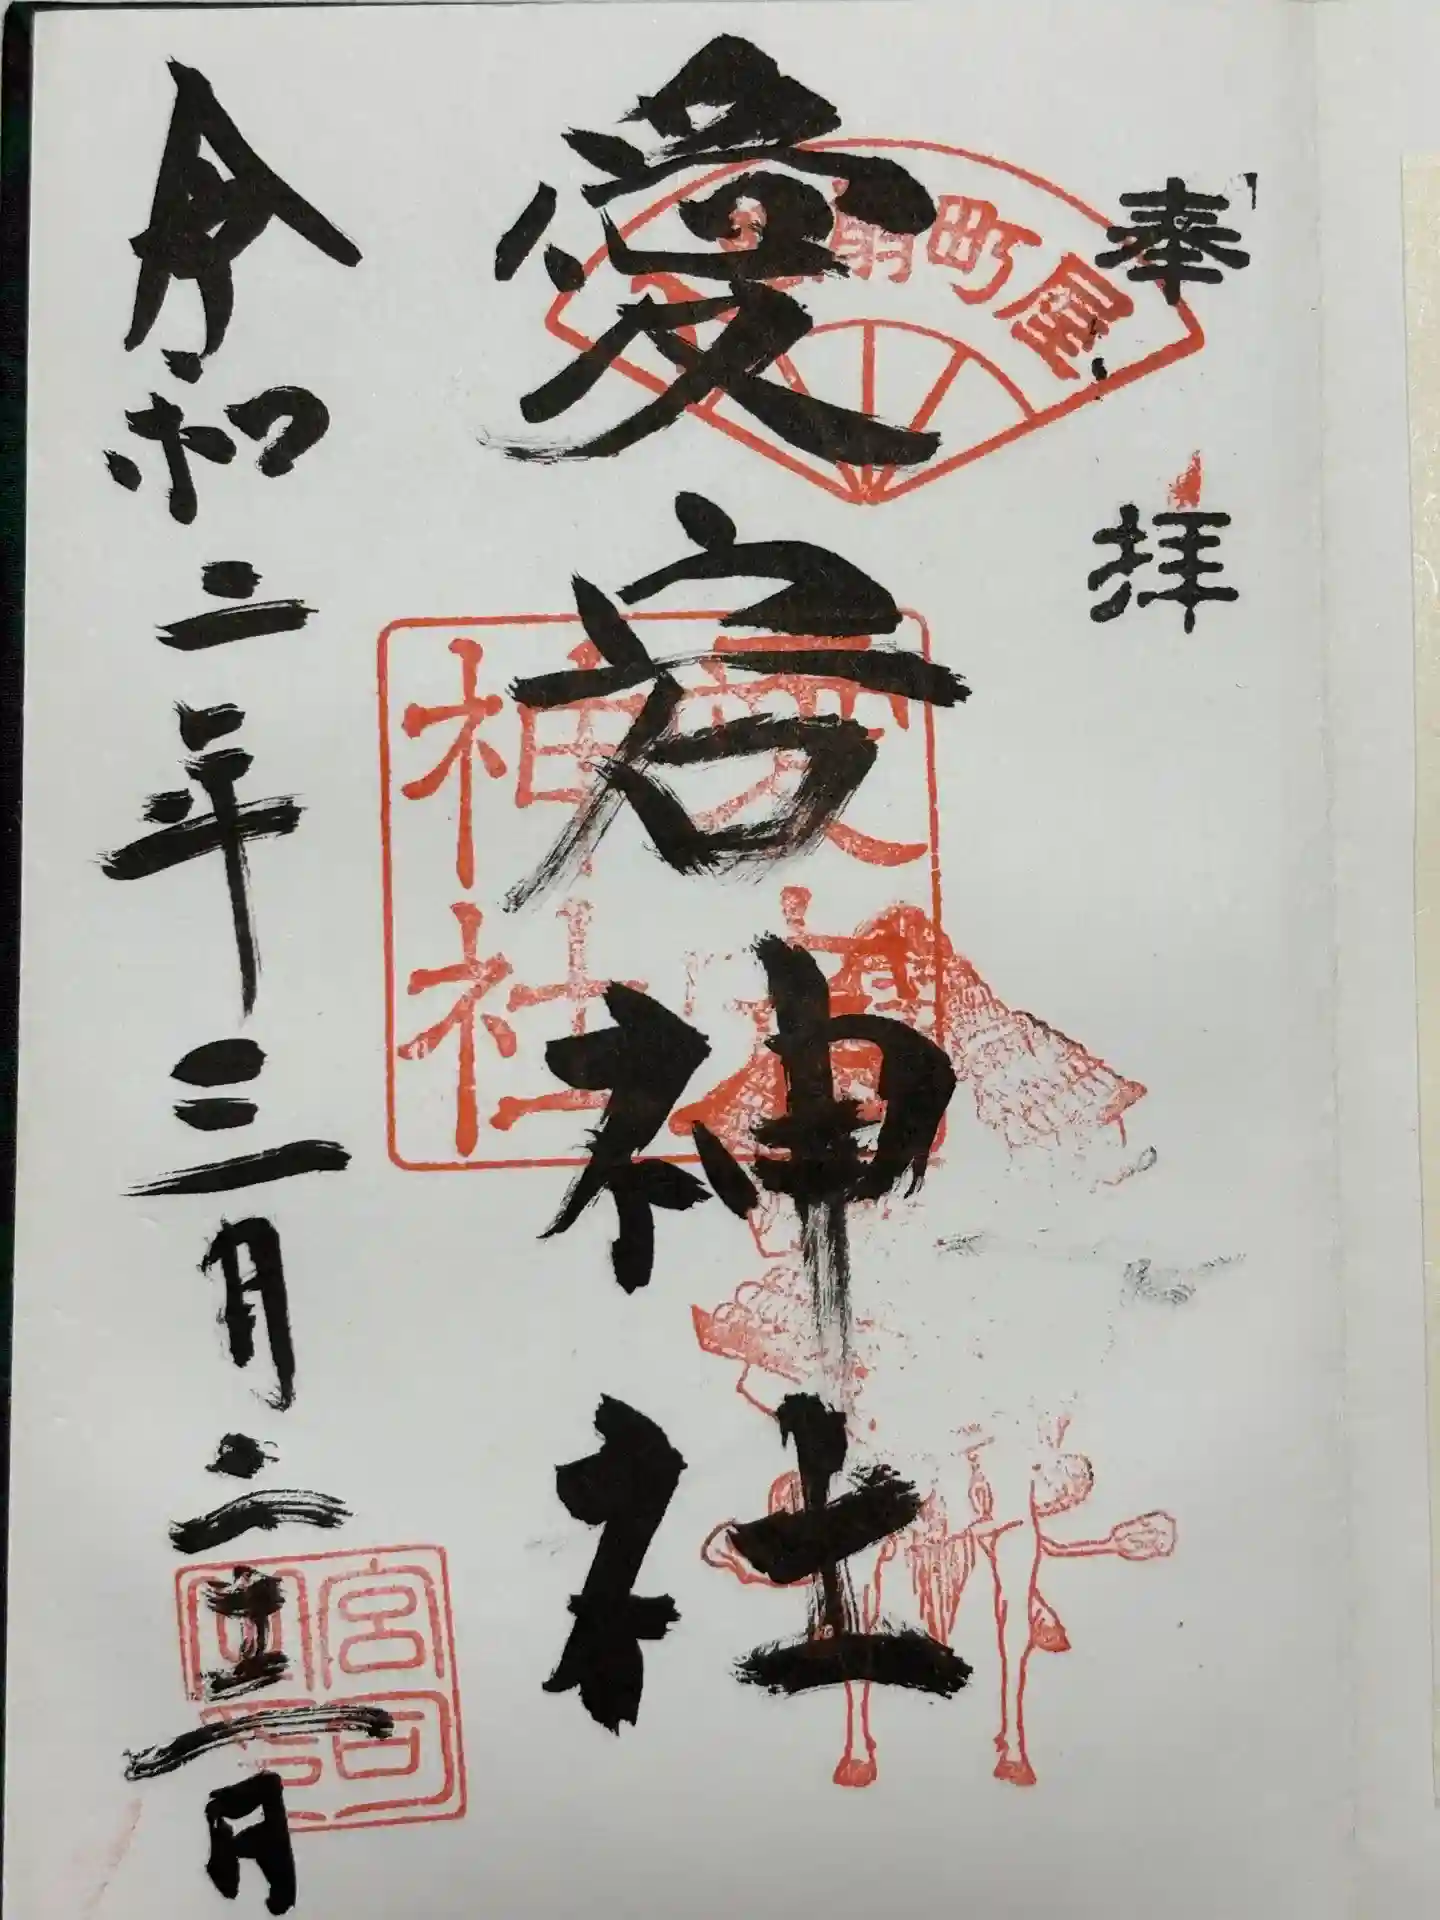 奉拝
愛宕神社
愛宕神社
令和二年三月二十二日
宮司之印